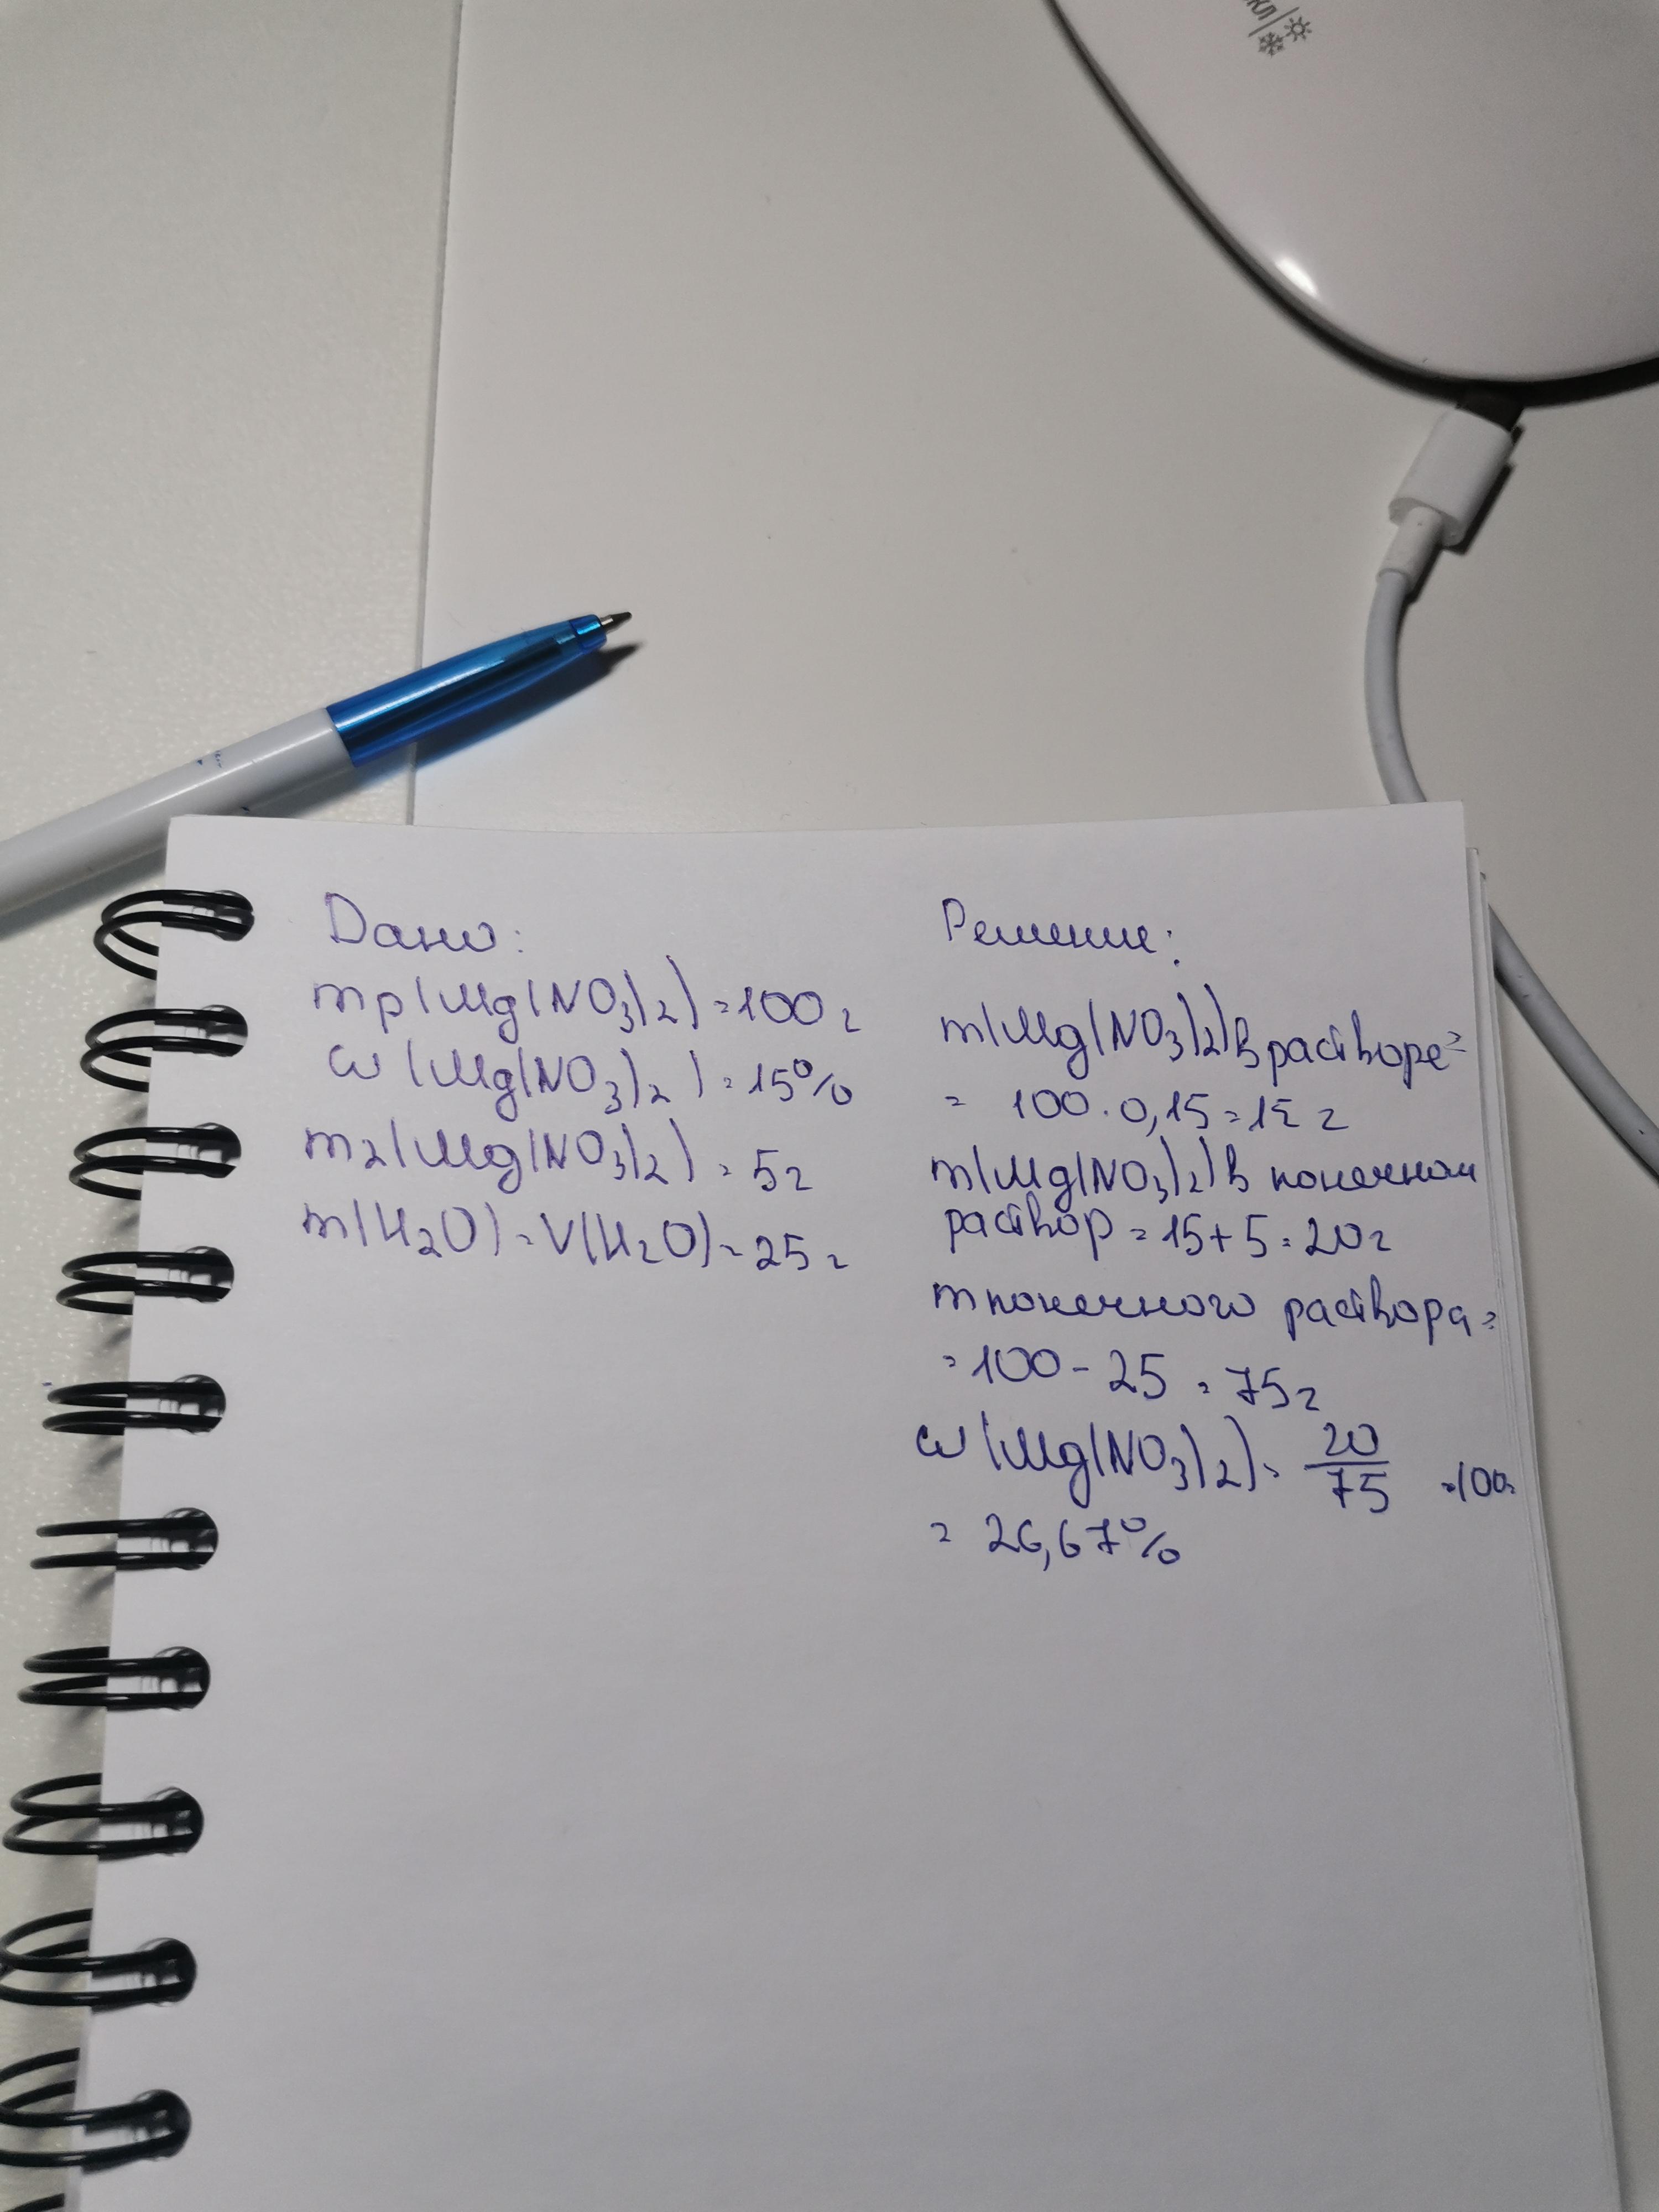 кл/
Дано:
mр(Mg(NO3)2)=100г
ω(Mg(NO3)2)=15%
m2(Mg(NO3)2)=5г
m(H2O)=V(H2O)=25г
Решение:
m(Mg(NO3)2) в растворе=
= 100·0,15=15г
m(Mg(NO3)2) в конечном
раствор=15+5=20г
m конечного раствора=
=100-25=75г
ω(Mg(NO3)2)=20/75 ·100=
= 26,67%